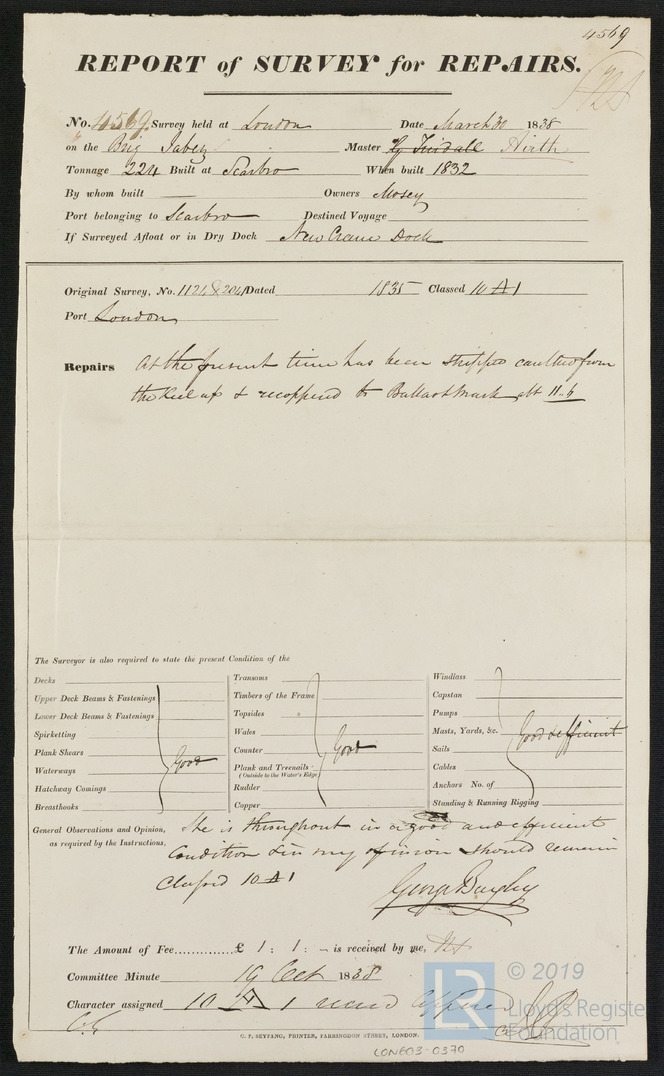 4569
REPORT of SURVEY for REPAIRS.
No. 4569. Survey held at London Date March 30 1838
on the Brig Jabez Master G Tindall Airth
Tonnage 224 Built at Scarbro When built 1832
By whom built — Owners Mosey
Port belonging to Scarbro Destined Voyage
If Surveyed Afloat or in Dry Dock New Crane Dock
Original Survey, No. 1124 & 2041 Dated 1835 Classed 10 A 1
Port London
Repairs At the present time has been stripped caulked from
the Keel up & recoppered to Ballast Mark abt 11.. 6
The Surveyor is also required to state the present Condition of the
Decks
Upper Deck Beams & Fastenings
Lower Deck Beams & Fastenings
Spirketting
Plank Shears
Waterways
Hatchway Comings
Breasthooks
Good
Transoms
Timbers of the Frame
Topsides
Wales
Counter
Plank and Treenails
(Outside to the Water's Edge)
Rudder
Copper
Good
Windlass
Capstan
Pumps
Masts, Yards, &c.
Sails
Cables
Anchors No. of
Standing & Running Rigging
Good & efficient
General Observations and Opinion,
as required by the Instructions,
She is throughout in a good and efficient
Condition & in my opinion should remain
Classed 10 A 1
George Bayley
The Amount of Fee............... £ 1 : 1 : - is received by me,
Committee Minute 19 Oct 1838
Character assigned 10 A 1
C. F. SEYFANG, PRINTER, FARRINGDON STREET, LONDON.
LON603-0370
LR
© 2019
Lloyd's Register
Foundation